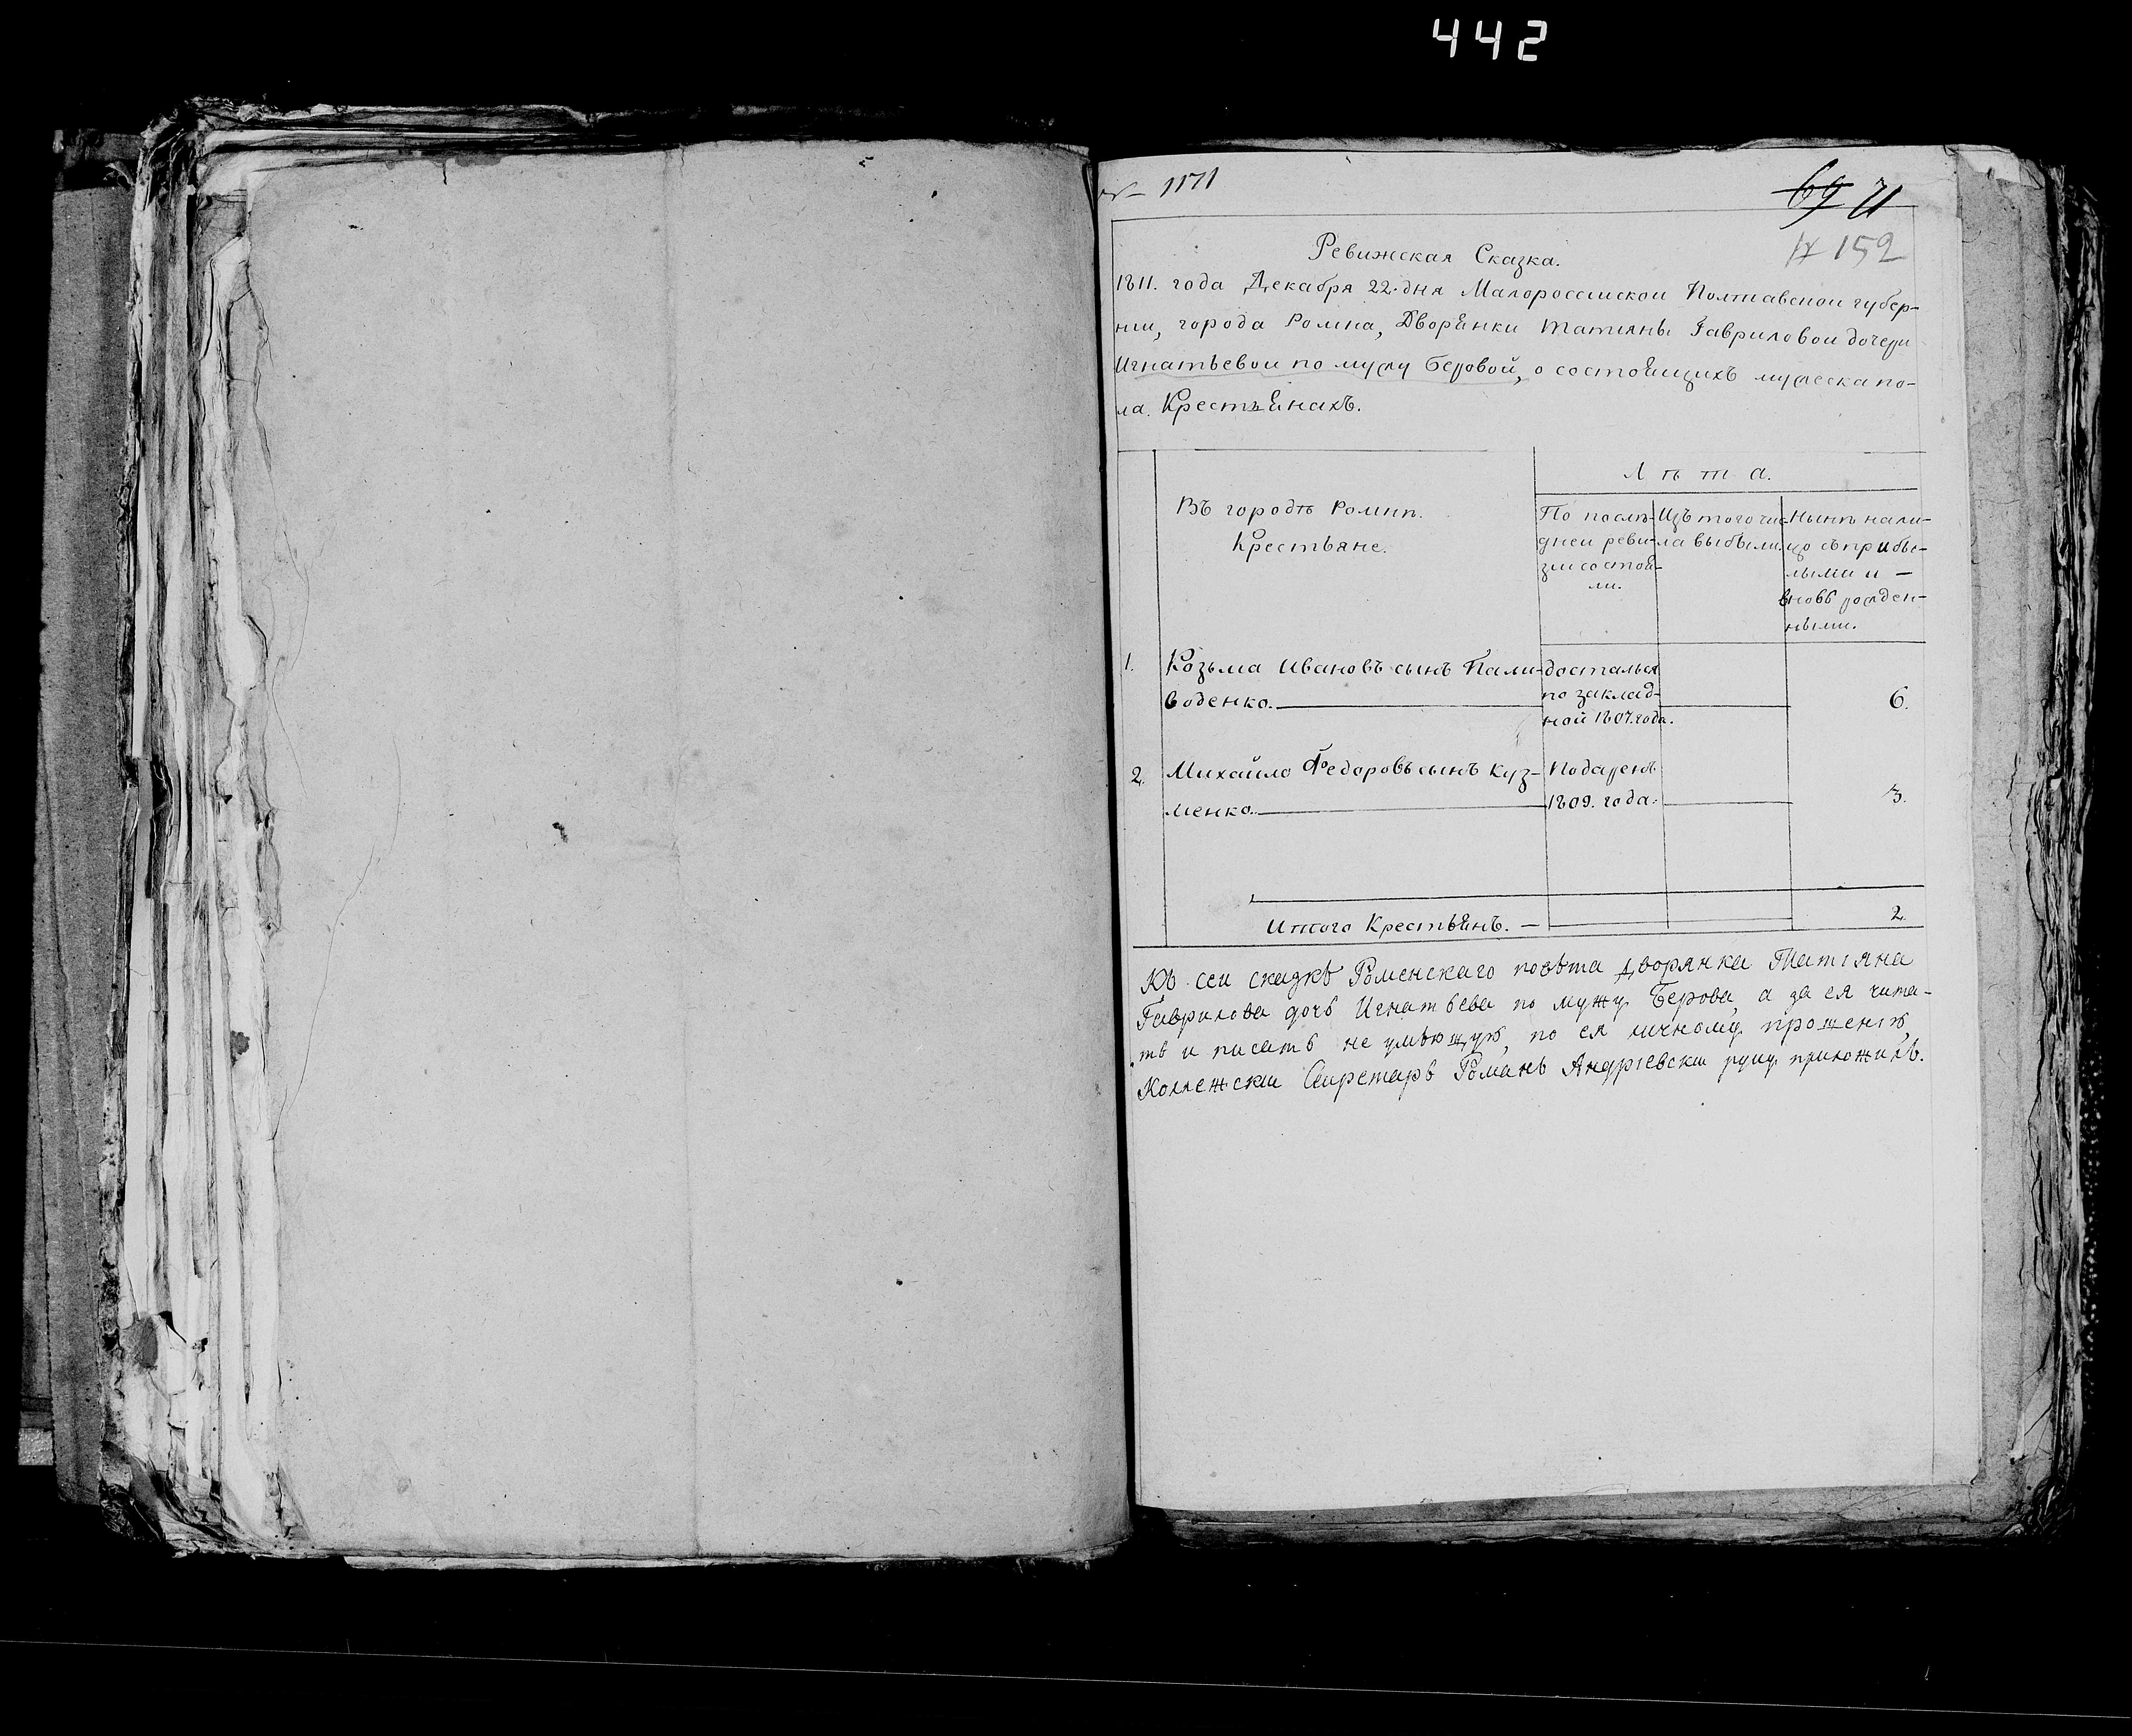 442
№ 1171
69 71
152
Ревижская Сказка.
1811. года Декабря 22. дня Малороссиской Полтавской губер-
нии, города Ромна, Дворянки Татияны Гавриловой дочери
Игнатьевой по мужу Беровой, о состоящихъ мужеска по-
ла. Крестьянахъ.
Лѣта.
Въ городѣ Ромнѣ.
Крестьяне.
По послѣ-
дней реви-
зии состоя-
ли.
Изъ того чис-
ла выбыли.
Нынѣ нали-
цо съ прибы-
лыми и —
вновь рожден-
ными.
1. Козьма Ивановъ сынъ Пали- досталься
по заклад-
воденко. 6.
ной 1807. года.
2. Михайло Федоровъ сынъ Куз- Подаренъ
менко. 1809. года. 3.
Итого Крестьянъ. — 2.
Къ сей сказкѣ Роменскаго повѣта дворянка Татіяна
Гаврилова дочь Игнатьева по мужу Берова, а за ея чита-
ть и писать не умѣющую, по ея личному прошенію,
Коллежскии Секретарь Романъ Андріевскии руку приложилъ.